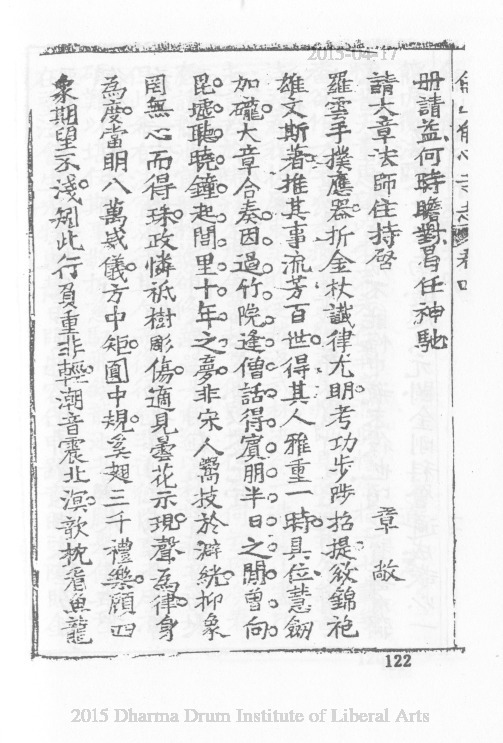 2015-04-17
卷四
册請益何時瞻對曷任神馳
請大章法師住持啓 章敞
羅雲手撲應器折金杖讖律尤明考功步陟招提欲錦袍
雄文斯著推其事流芳百世得其人雅重一時具位慧劒
加礲大章合奏因過竹院逢僧話得賓朋半日之閒曾向
毘墟聽曉鐘起閭里十年之夢非宋人鬻技於澼絖抑象
罔無心而得珠政憐祗樹彫傷適見曇花示現聲為律身
為度當明八萬威儀方中矩圓中規奚翅三千禮樂顧四
衆期望不淺矧此行負重非輕潮音震北溟歌枕看魚龍
122
2015 Dharma Drum Institute of Liberal Arts